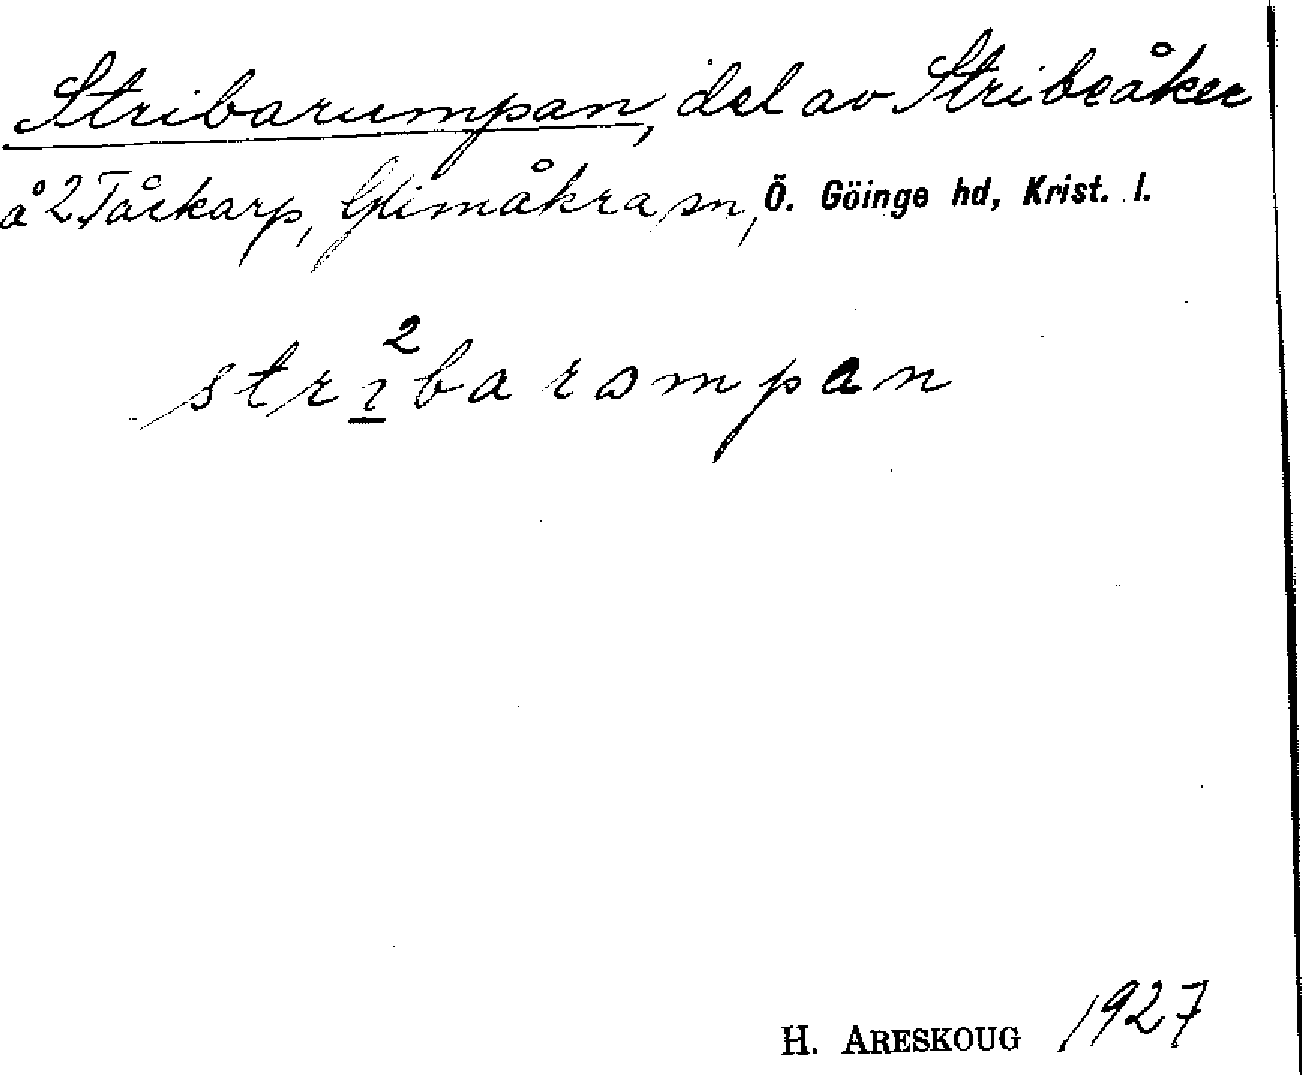 Stribarumpan, del av Stribeåker
å 2 Tåckarp, Glimåkra sn, Ö. Göinge hd, Krist. l.
strı²barompan
H. ARESKOUG 1927